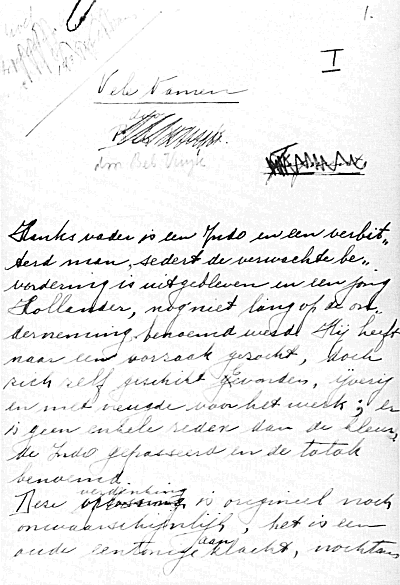 1.
I
Vele Namen
door
door Beb Vuyk
Hanks vader is een Indo en een verbit-
terd man, sedert de verwachte be-
vordering is uitgebleven en een jong
Hollander, nog niet lang op de on-
derneming benoemd werd. Hij heeft
naar een oorzaak gezocht, doch
zich zelf geschikt gevonden, ijverig
en met vreugde voor het werk; er
is geen enkele reden dan de kleur,
de Indo gepasseerd en de totok
benoemd.
Deze verdenking is origineel noch
onwaarschijnlijk, het is een
oude eentonige aanklacht, nochtans